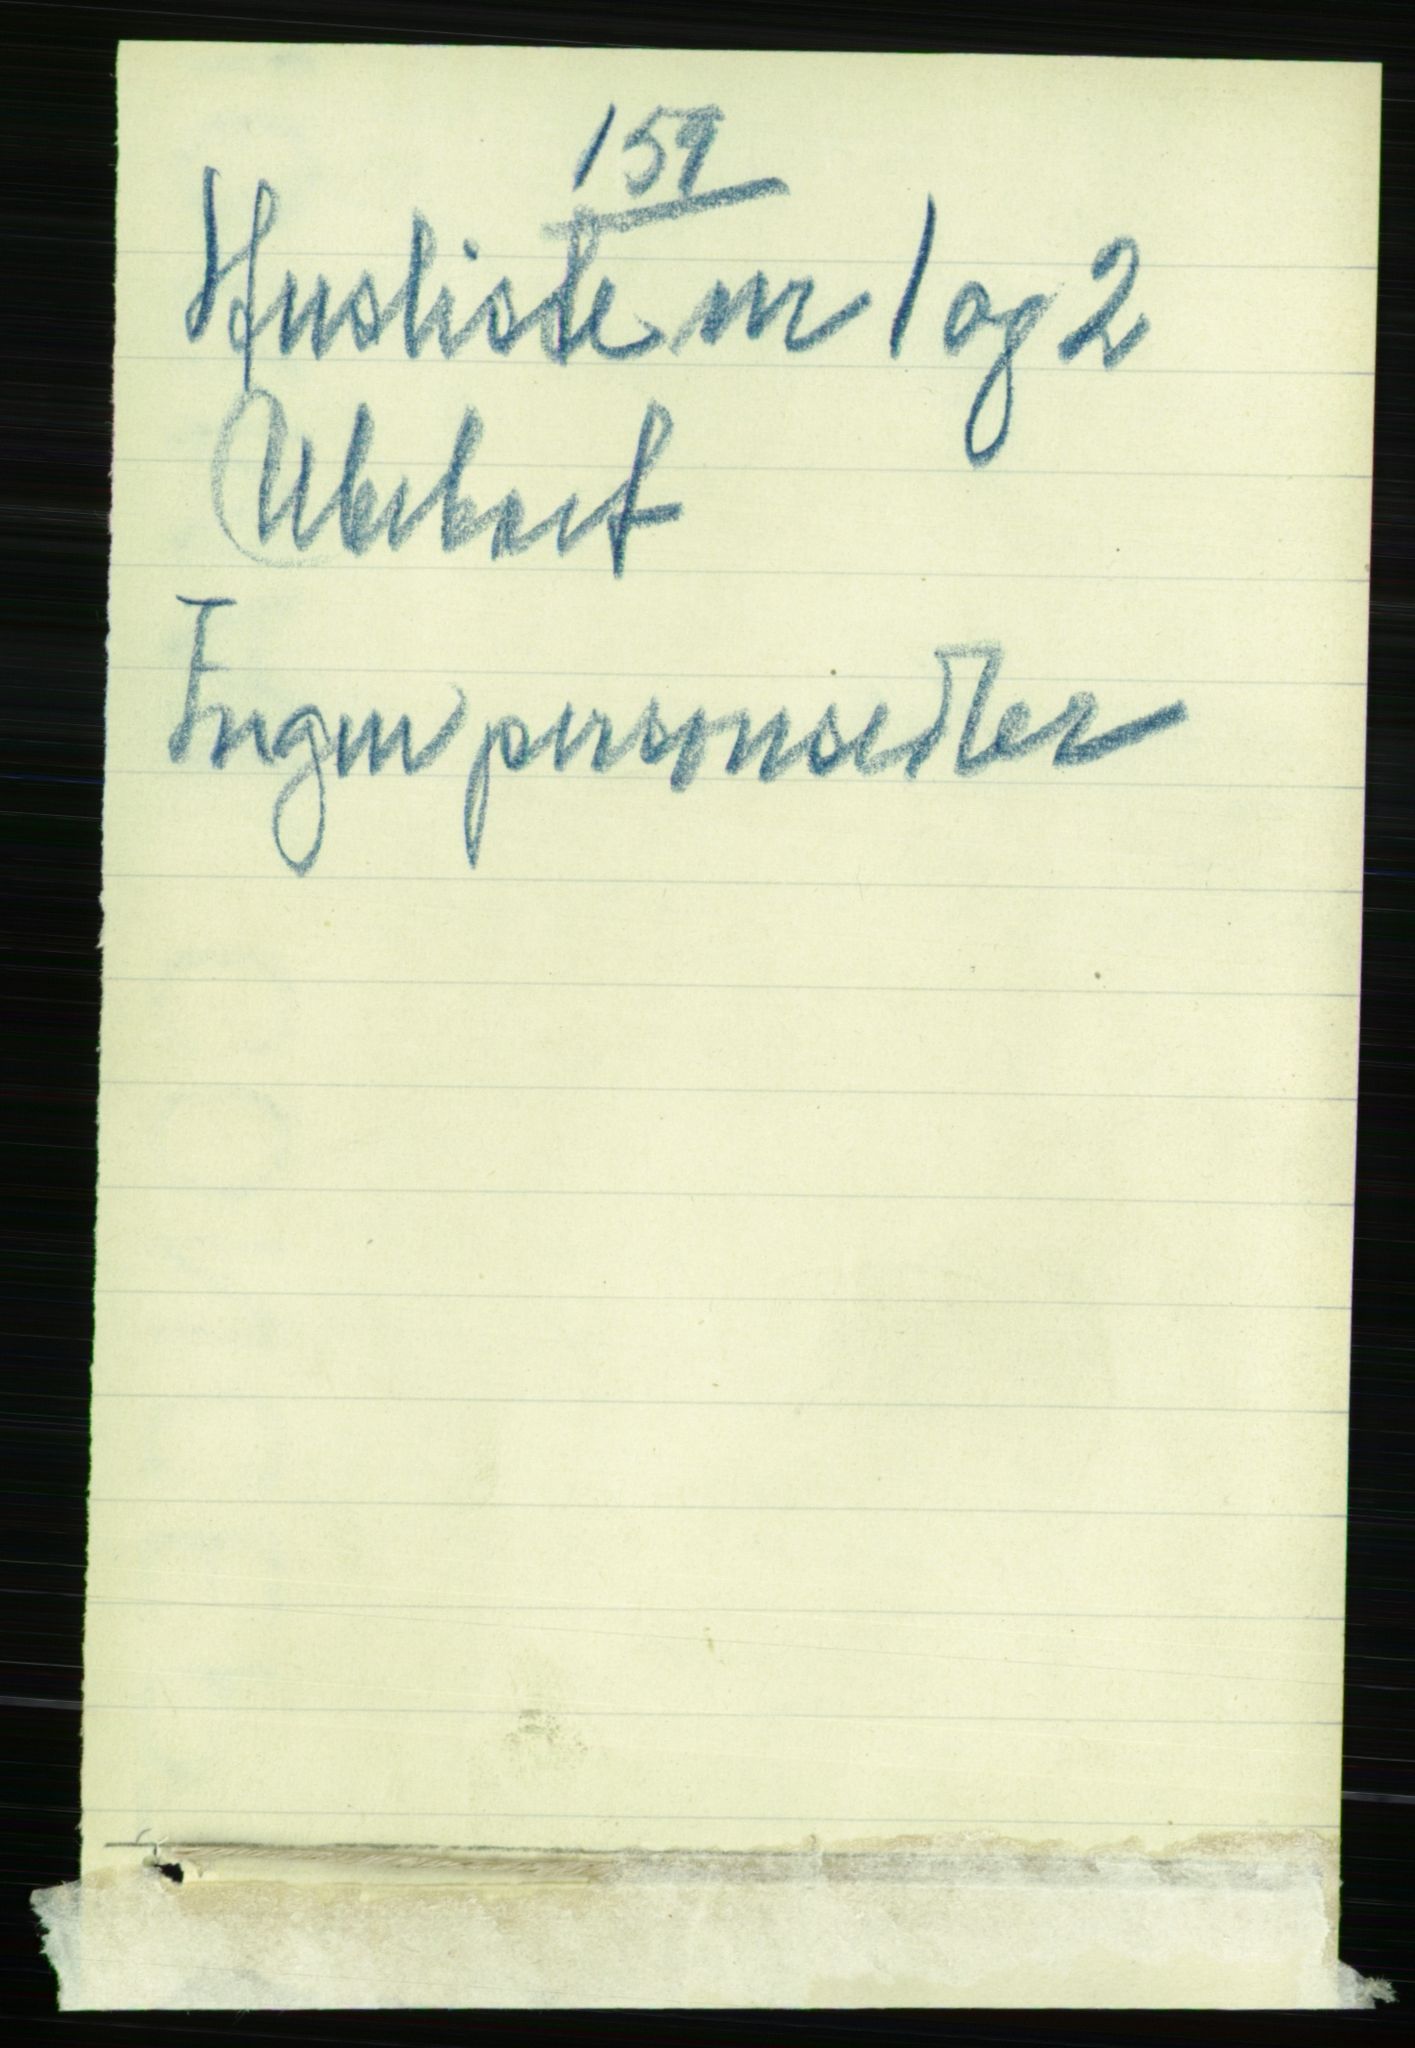 159
Husliste nr 1 og 2
Ubeboet
Ingen personsedler